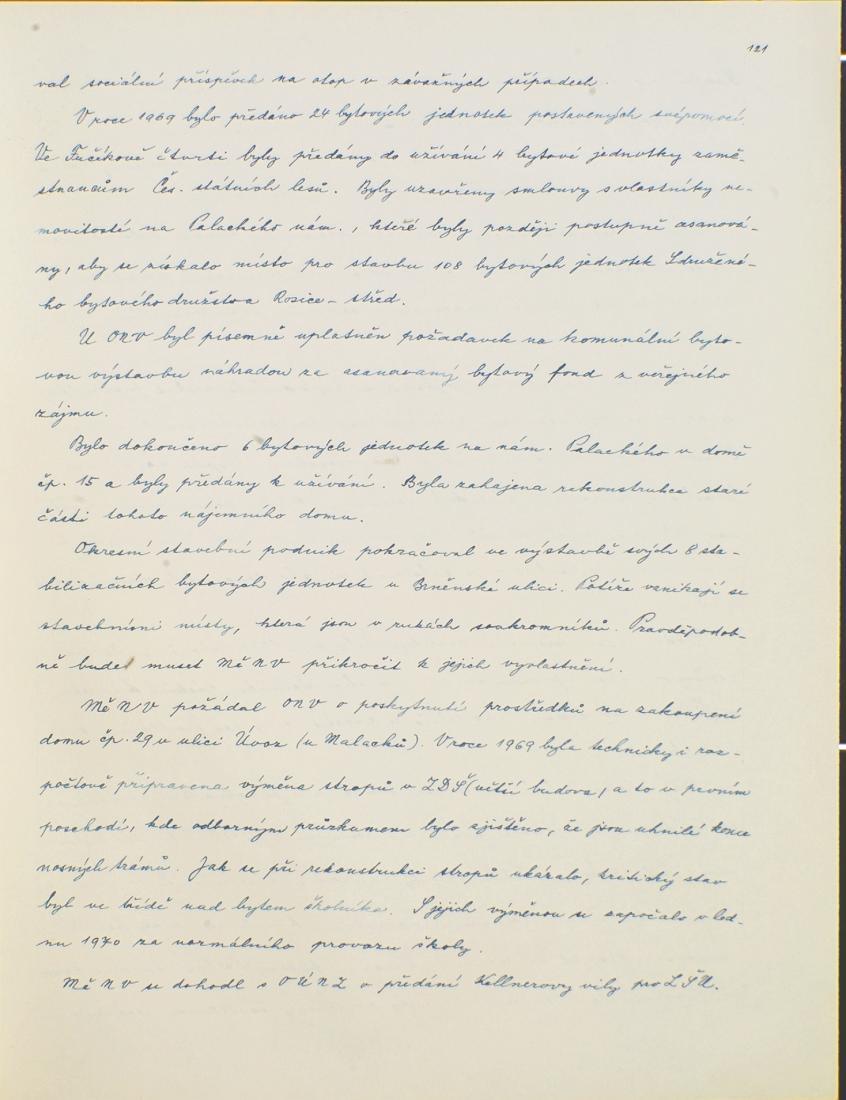 121
val sociální příspěvek na otop v závažných případech.
V roce 1969 bylo předáno 24 bytových jednotek postavených svépomocí.
Ve Fučíkově čtvrti byly předány do užívání 4 bytové jednotky zamě-
stnancům Čes. státních lesů. Byly uzavřeny smlouvy s vlastníky ne-
movitostí na Palachého nám., které byly později postupně asanová-
ny, aby se získalo místo pro stavbu 108 bytových jednotek Sdružené-
ho bytového družstva Rosice - střed.
U ONV byl písemně uplatněn požadavek na komunální byto-
vou výstavbu náhradou za asanovaný bytový fond z veřejného
zájmu.
Bylo dokončeno 6 bytových jednotek na nám. Palachého v domě
čp. 15 a byly předány k užívání. Byla zahájena rekonstrukce staré
části tohoto nájemního domu.
Okresní stavební podnik pokračoval ve výstavbě svých 8 sta-
bilizačních bytových jednotek v Brněnské ulici. Potíže vznikají se
stavebními místy, která jsou v rukách soukromníků. Pravděpodob-
ně bude muset MěNV přikročit k jejich vyvlastnění.
MěNV požádal ONV o poskytnutí prostředků na zakoupení
domu čp. 29 v ulici Úvoz (u Malachů). V roce 1969 byla technicky i roz-
počtově připravena výměna stropů v ZDŠ (větší budova) a to v prvním
poschodí, kde odborným průzkumem bylo zjištěno, že jsou uhnilé konce
nosných trámů. Jak se při rekonstrukci stropů ukázalo, kritický stav
byl ve třídě nad bytem školníka. S jejich výměnou se započalo v led-
nu 1970 za normálního provozu školy.
MěNV se dohodl s OÚNZ o předání Kellnerovy vily pro LŠU.